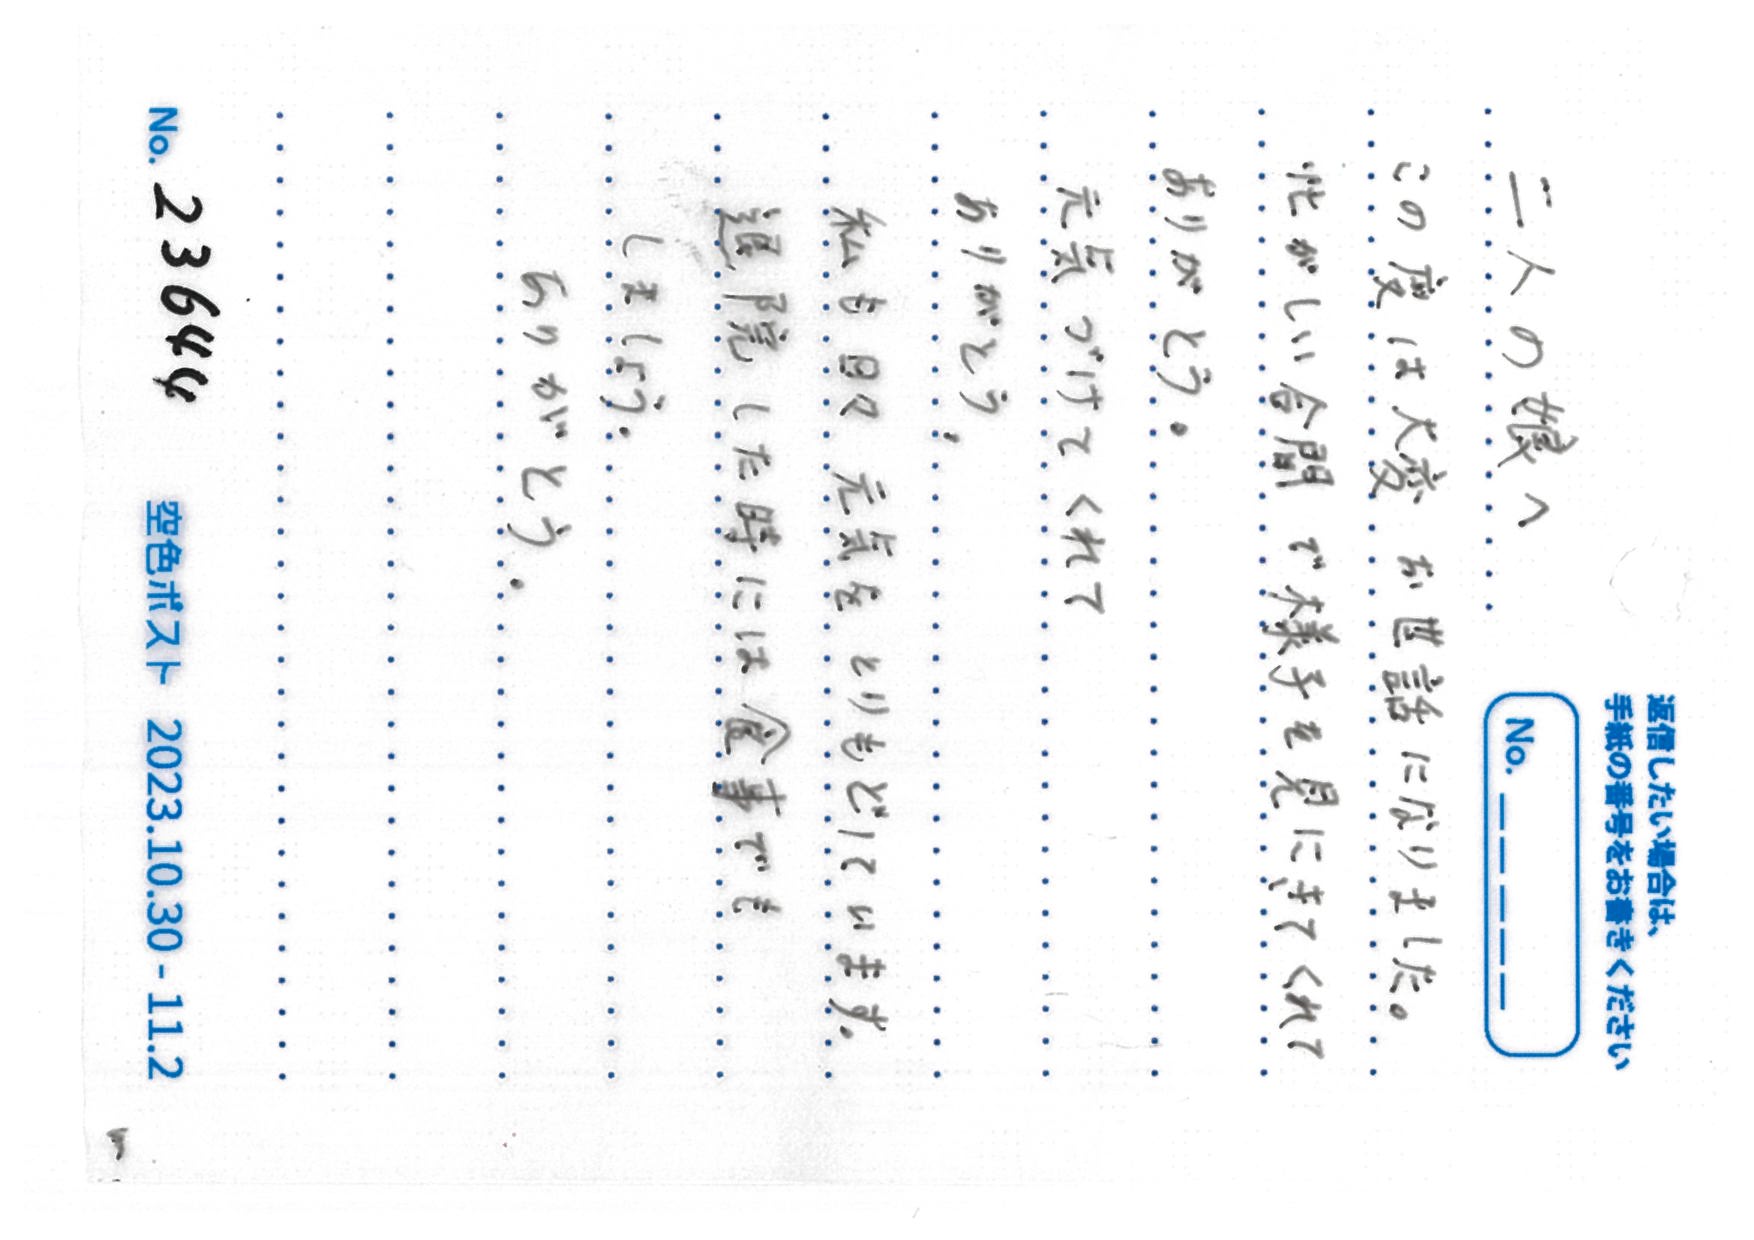 返信したい場合は、
手紙の番号をお書きください
No. _ _ _ _ _
二人の娘へ
この度は大変お世話になりました。
忙がしい合間で様子を見にきてくれて
ありがとう。
元気づけてくれて
ありがとう。
私も日々元気をとりもどしています。
退院した時には食事でも
しましょう。
ありがとう。
No. 23644
空色ポスト 2023.10.30 - 11.2